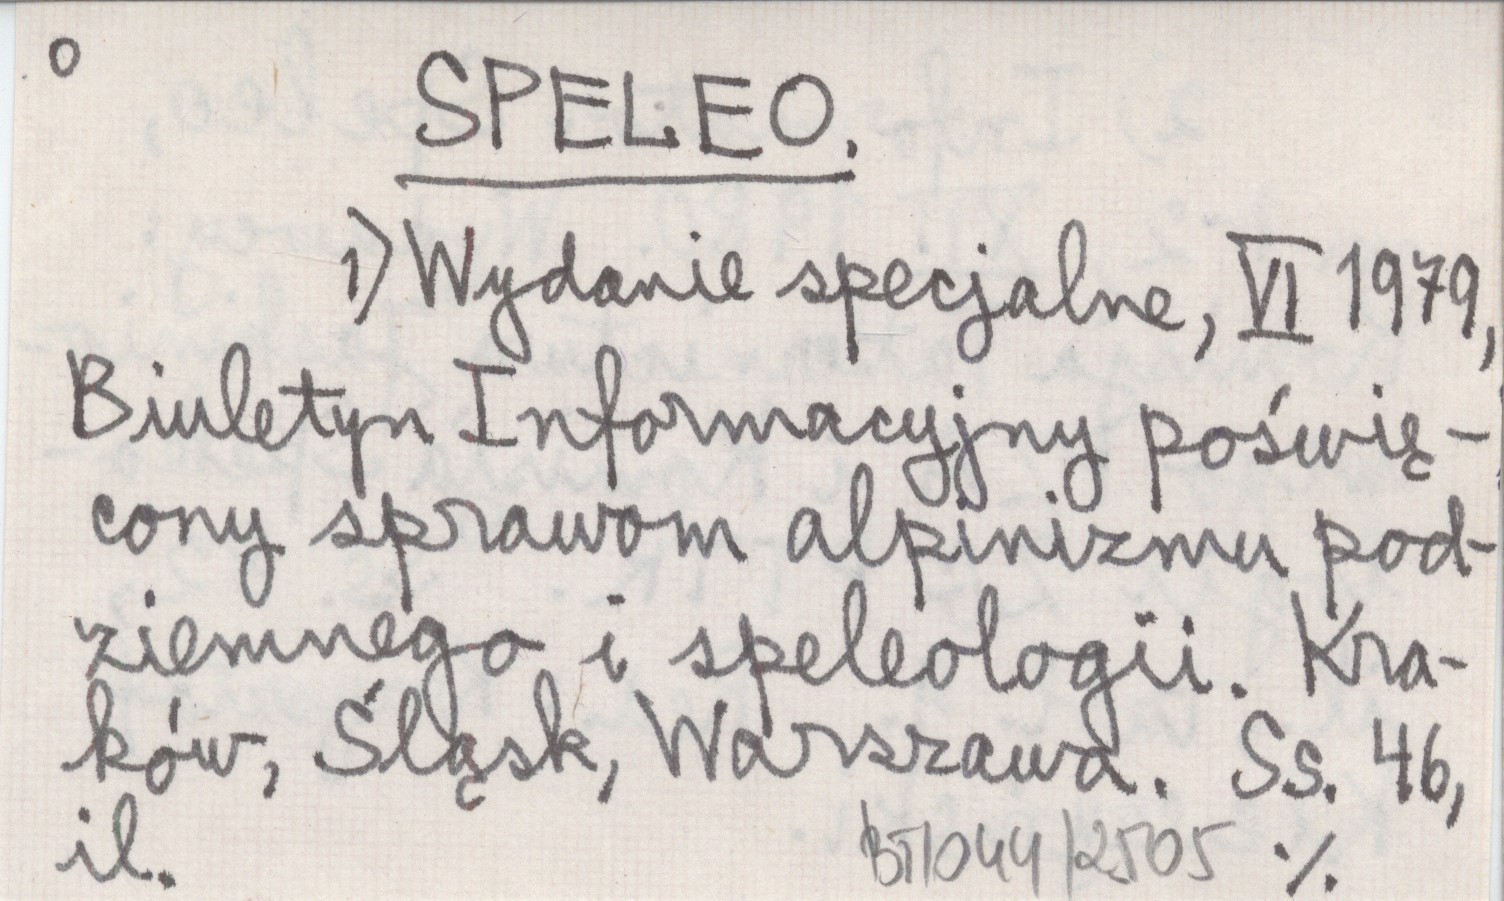 O
SPELEO.
1) Wydanie specjalne, VI 1979,
Biuletyn Informacyjny poświę-
cony sprawom alpinizmu pod-
ziemnego i speleologii. Kra-
ków, Śląsk, Warszawa. Ss. 46,
il.
BT/044/2505 ./.